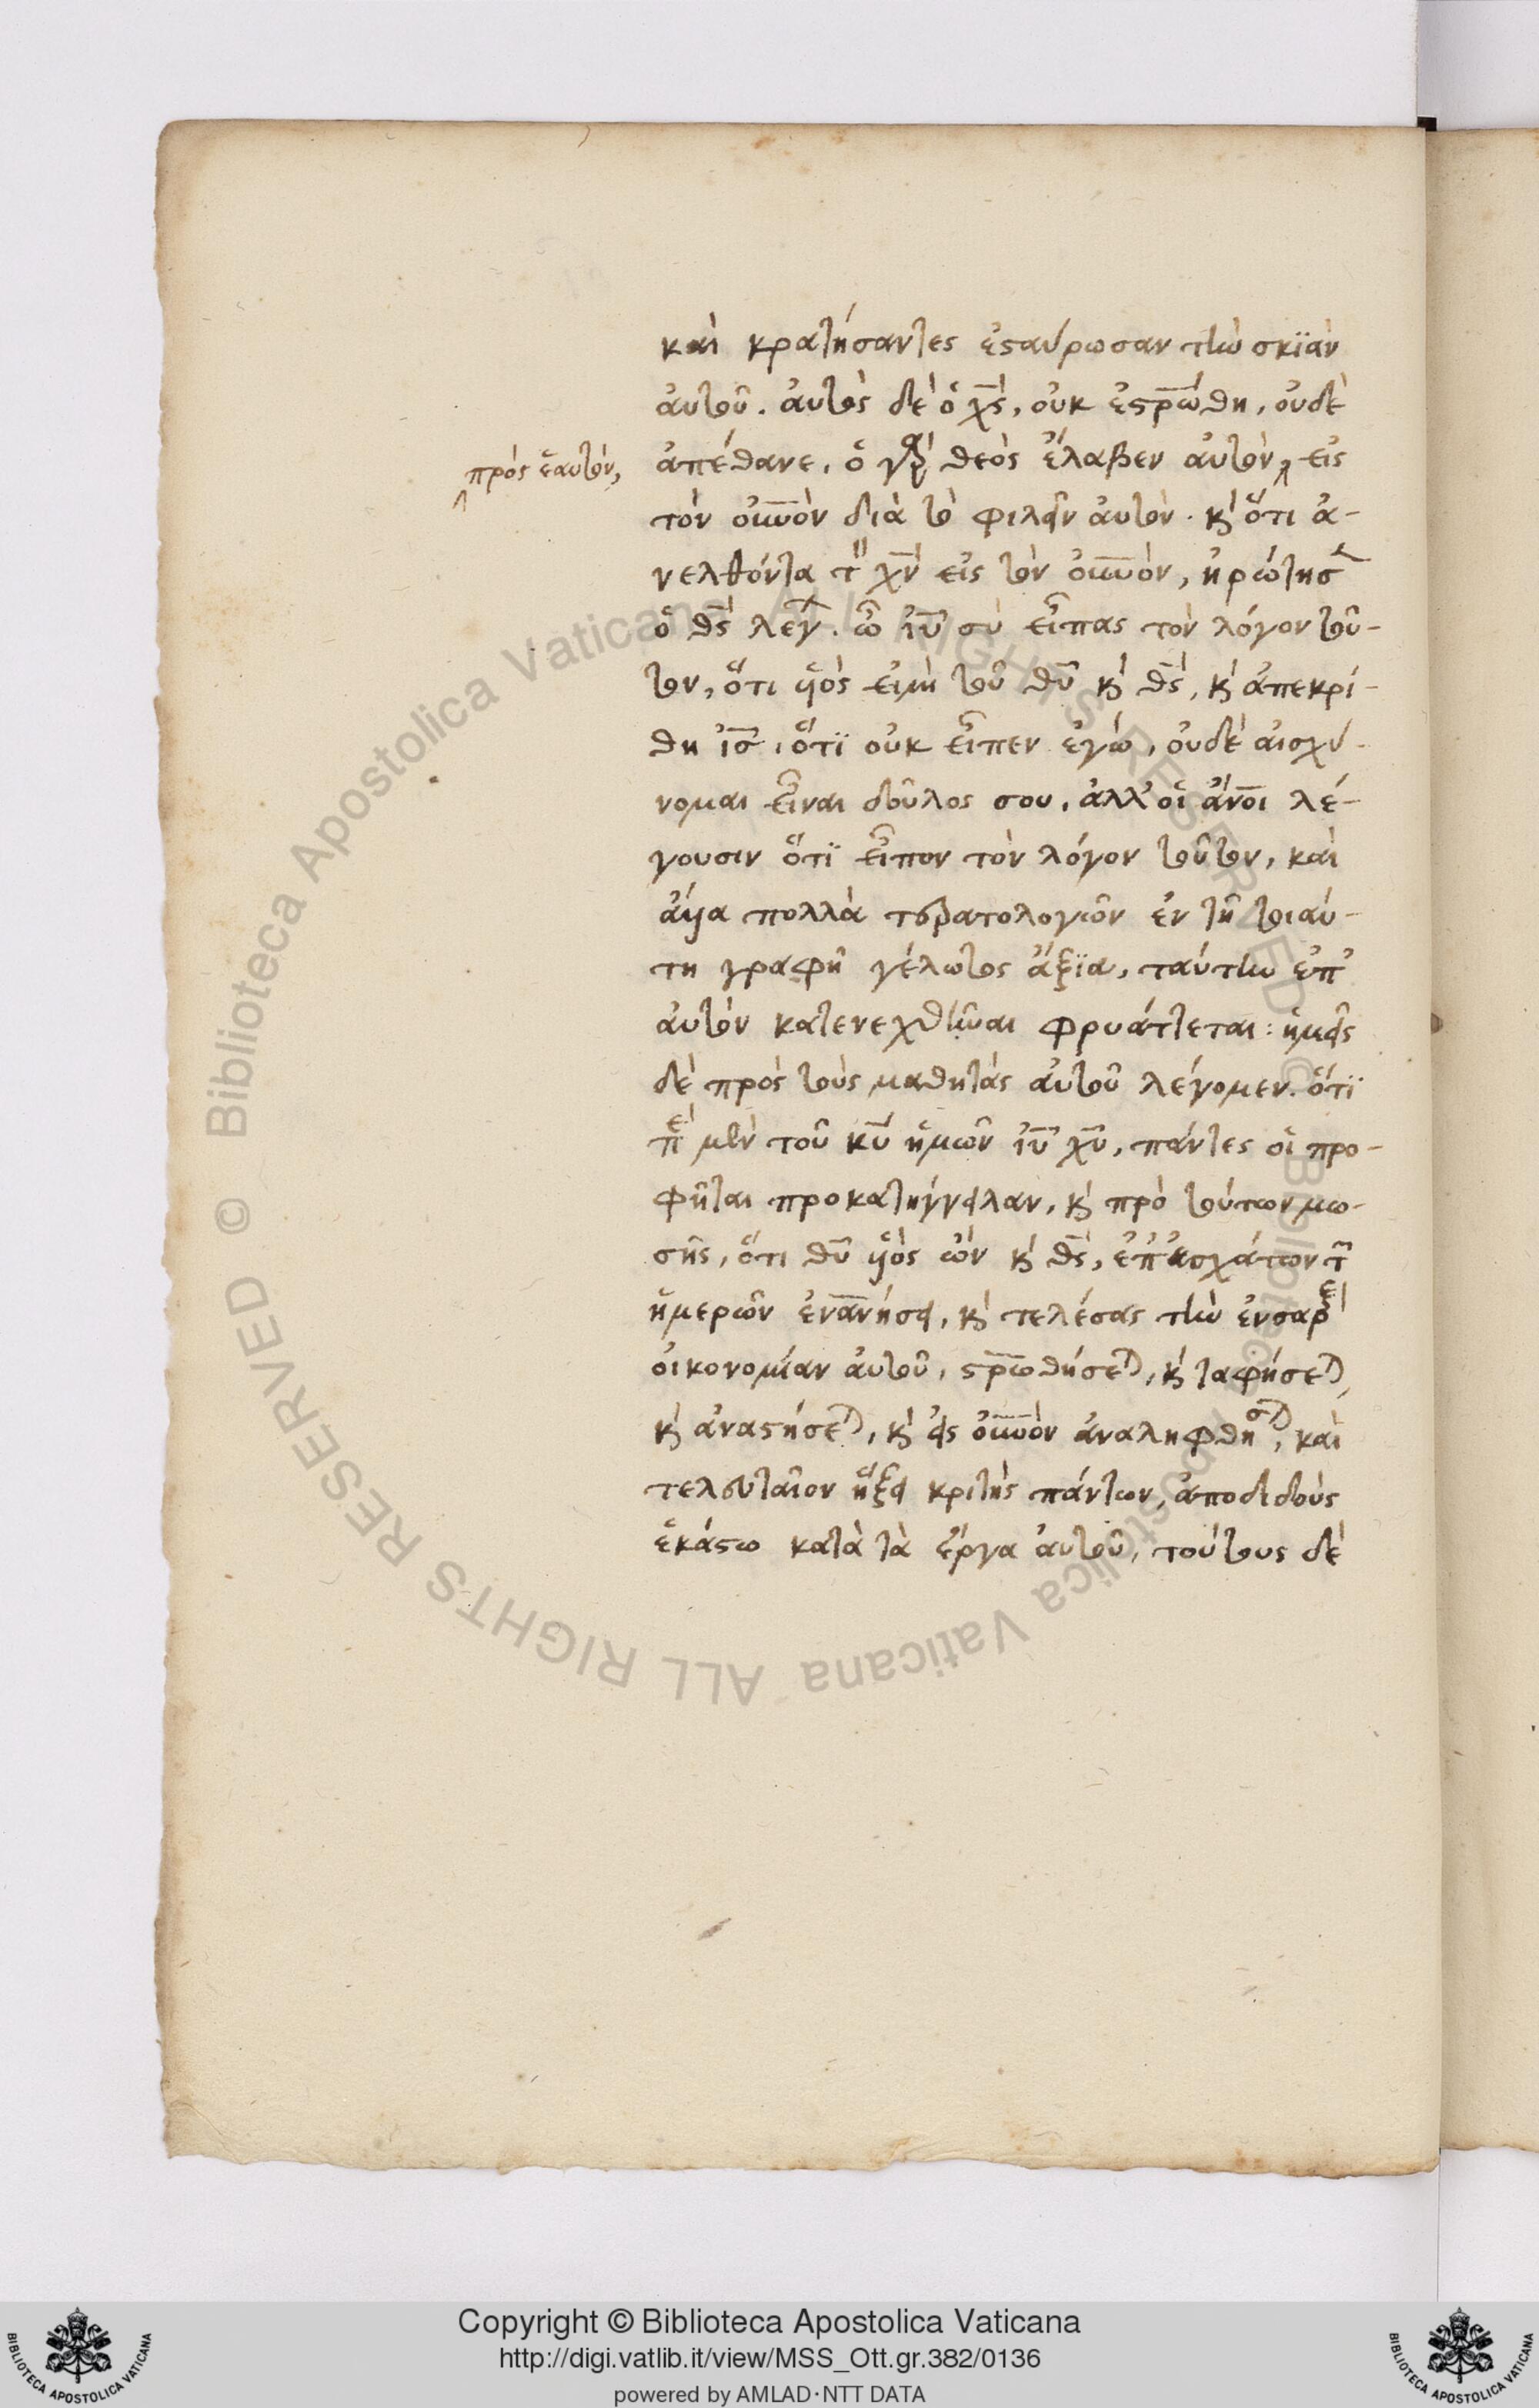 καὶ κρατήσαντες ἐσταύρωσαν τὴν σκϊὰν
ἀυτοῦ. ἀυτὸς δὲ ὁ χς, οὐκ ἐστρώθη, οὐδὲ
ἀπέθανε, ὁ γὰρ θεὸς ἔλαβεν ἀυτὸν, εἰς
πρὸς ἑαυτὸν,
τὸν οὐνὸν διὰ τὸ φιλεῖν ἀυτὸν. κὶ ὅτι ἀ-
νελθόντα τ χν εἰς τὸν οὐνὸν, ἠρώτησ
ὁ θς λέγ. ὦ ιυ σὺ εἶπας τὸν λόγον τοῦ-
τον, ὅτι υἱός εἰμι τοῦ θυ κὶ θς, κὶ ἀπεκρί-
θη ις, ὅτϊ οὐκ εἶπεν ἐγώ, οὐδὲ αἰσχύ-
νομαι εἶναι δοῦλος σου, ἀλλ' οἱ ἄνοι λέ-
γουσιν ὅτϊ εἶπον τὸν λόγον τοῦτον, καὶ
ἄλλα πολλὰ τερατολογῶν ἐν τῇ τοιαύ-
τη γραφῇ γέλωτος ἄξϊα, ταύτην ἐπ'
ἀυτὸν κατενεχθῆναι φρυάττεται: ἡμεῖς
δὲ πρὸς τοὺς μαθητὰς ἀυτοῦ λέγομεν. ὅτϊ
πε μὲν τοῦ κυ ἡμῶν ιυ χυ, πάντες οἱ προ-
φῆται προκατήγγειλαν, κὶ πρὸ τούτων μω-
σῆς, ὅτι θυ υἱὸς ὢν κὶ θς, ἐπ' ἐσχάτων τ
ἡμερῶν ἐνανήσει, κὶ τελέσας τὴν ἐνσαρξ
οἰκονομίαν ἀυτοῦ, στρωθήσε, κὶ ταφήσε,
κὶ ἀναστήσε, κὶ εἰς οὐνὸν ἀναληφθησ, καὶ
τελευταῖον ἥξει κριτὴς πάντων, ἀποδιδοὺς
ἑκάστω κατὰ τὰ ἔργα ἀυτοῦ, τούτους δὲ
Copyright © Biblioteca Apostolica Vaticana
http://digi.vatlib.it/view/MSS_Ott.gr.382/0136
powered by AMLAD·NTT DATA
BIBLIOTECA APOSTOLICA VATICANA
BIBLIOTECA APOSTOLICA VATICANA
© Biblioteca Apostolica Vaticana ALL RIGHTS RESERVED
© Biblioteca Apostolica Vaticana ALL RIGHTS RESERVED